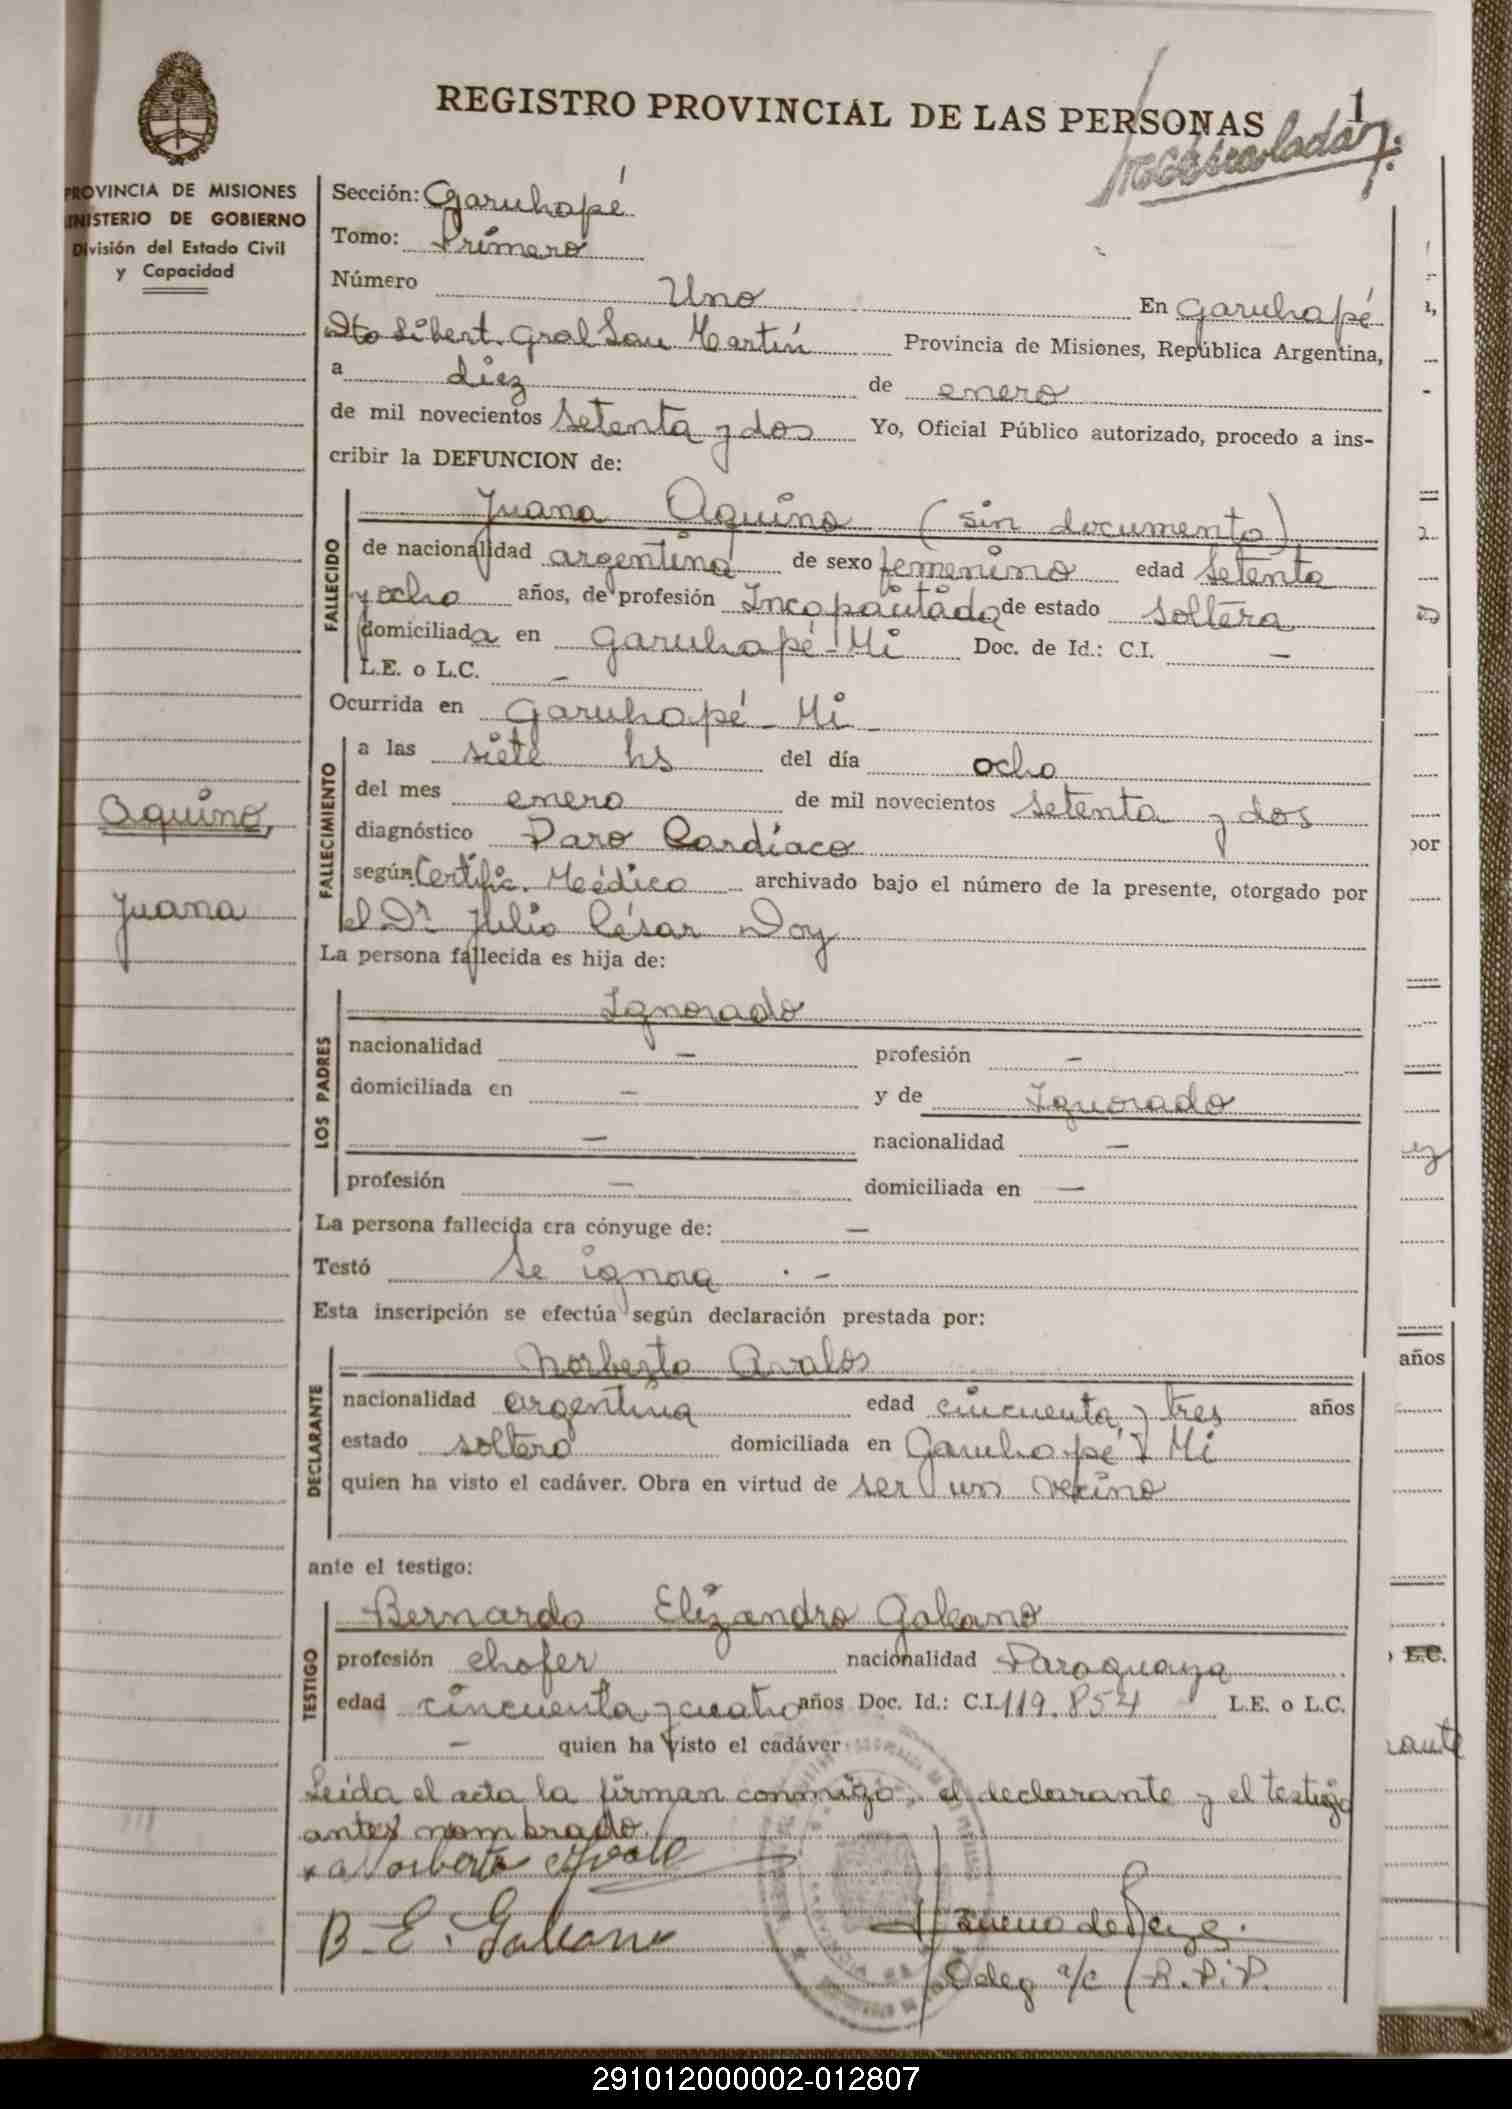 REGISTRO PROVINCIAL DE LAS PERSONAS
1
PROVINCIA DE MISIONES
MINISTERIO DE GOBIERNO
División del Estado Civil
y Capacidad
Sección: Garuhapé
Tomo: Primero
Número Uno En Garuhapé
Dto Libert. Gral San Martín Provincia de Misiones, República Argentina,
a diez de enero
de mil novecientos setenta y dos Yo, Oficial Público autorizado, procedo a ins-
cribir la DEFUNCION de:
FALLECIDO
Juana Aquino (sin documento)
de nacionalidad argentina de sexo femenino edad setenta
y ocho años, de profesión Incapacitada de estado soltera
domiciliada en Garuhapé-Mi Doc. de Id.: C.I. -
L.E. o L.C. -
Ocurrida en Garuhapé-Mi
FALLECIMIENTO
a las siete hs del día ocho
del mes enero de mil novecientos setenta y dos
diagnóstico Paro Cardíaco
según Certific. Médico archivado bajo el número de la presente, otorgado por
el Dr Julio César Doy
Aquino,
Juana
La persona fallecida es hija de:
LOS PADRES
Ignorado
nacionalidad - profesión -
domiciliada en - y de Ignorado
- nacionalidad -
profesión - domiciliada en -
La persona fallecida era cónyuge de: -
Testó Se ignora . -
Esta inscripción se efectúa según declaración prestada por:
DECLARANTE
Norberto Avalos
nacionalidad argentina edad cincuenta y tres años
estado soltero domiciliada en Garuhapé-Mi
quien ha visto el cadáver. Obra en virtud de ser un vecino
ante el testigo:
TESTIGO
Bernardo Elizandro Galeano
profesión chofer nacionalidad Paraguaya
edad cincuenta y cuatro años Doc. Id.: C.I. 119.854 L.E. o L.C.
- quien ha visto el cadáver
Leída el acta la firman conmigo, el declarante y el testigo
antes nombrado.
B. E. Galeano
Deleg a/c R.P.P.
por
años
L.C.
291012000002-012807